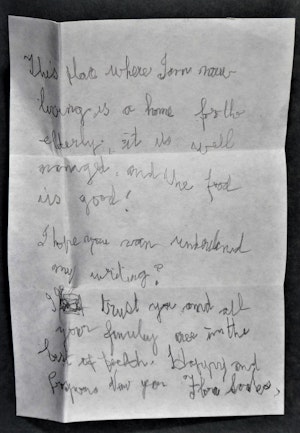 This place where I am now
living is a home for the
elderly, it is well
managed, and the food
is good!
I hope you can understand
my writing?
I trust you and all
your family are in the
best of health. Happy and
New you